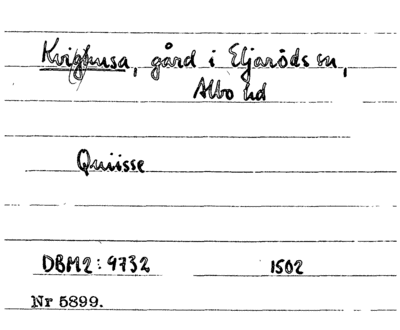 Kvighusa, gård i Eljaröds sn,
Albo hd
Quiisse
DBM2: 9732 1502
Nr 5899.